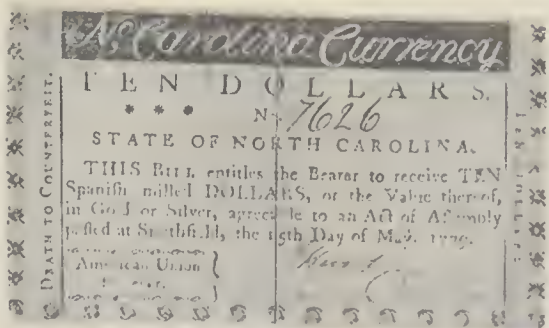 No Carolina Currency
TEN DOLLARS.
No 7626
STATE OF NORTH CAROLINA.
THIS BILL entitles the Bearer to receive TEN
Spaniſh milled DOLLARS, or the Value thereof,
in Gold or Silver, agreeable to an Act of Aſſembly
paſſed at Smithfield, the 15th Day of May, 1779.
American Union
DEATH TO COUNTERFEIT.
TEN DOLLARS